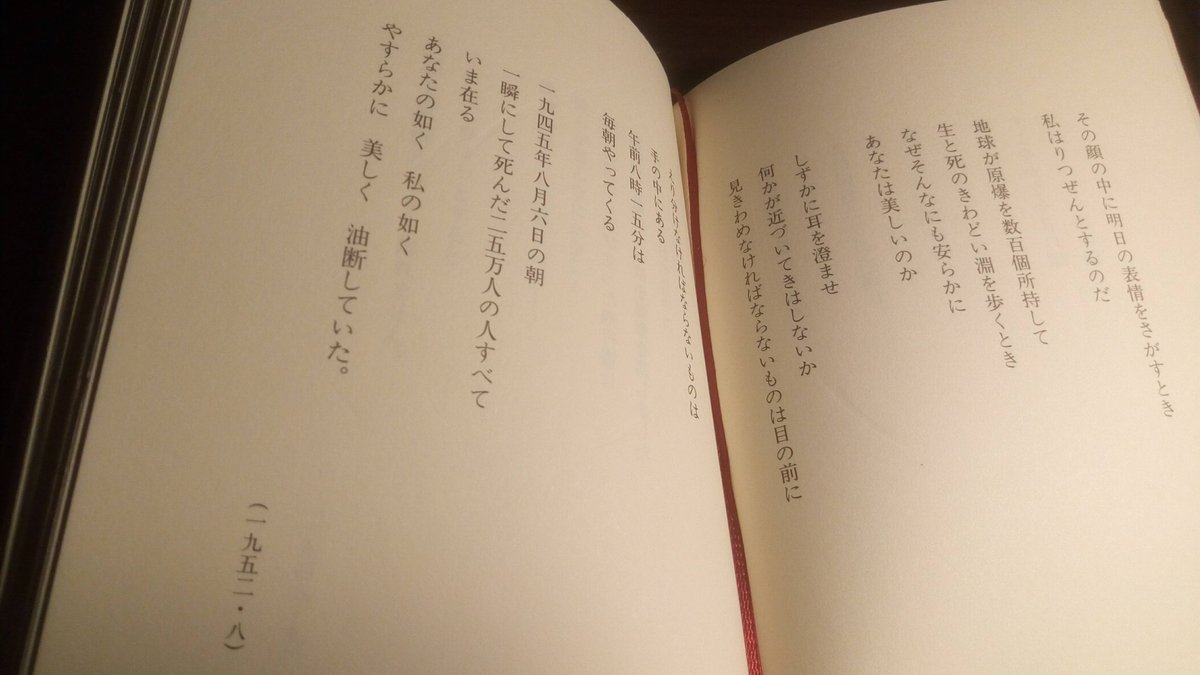 その顔の中に明日の表情をさがすとき
私はりつぜんとするのだ
地球が原爆を数百個所持して
生と死のきわどい淵を歩くとき
なぜそんなにも安らかに
あなたは美しいのか
しずかに耳を澄ませ
何かが近づいてきはしないか
見きわめなければならないものは目の前に
えり分けなければならないものは
手の中にある
午前八時一五分は
毎朝やってくる
一九四五年八月六日の朝
一瞬にして死んだ二五万人の人すべて
いま在る
あなたの如く 私の如く
やすらかに 美しく 油断していた。
(一九五二・八)